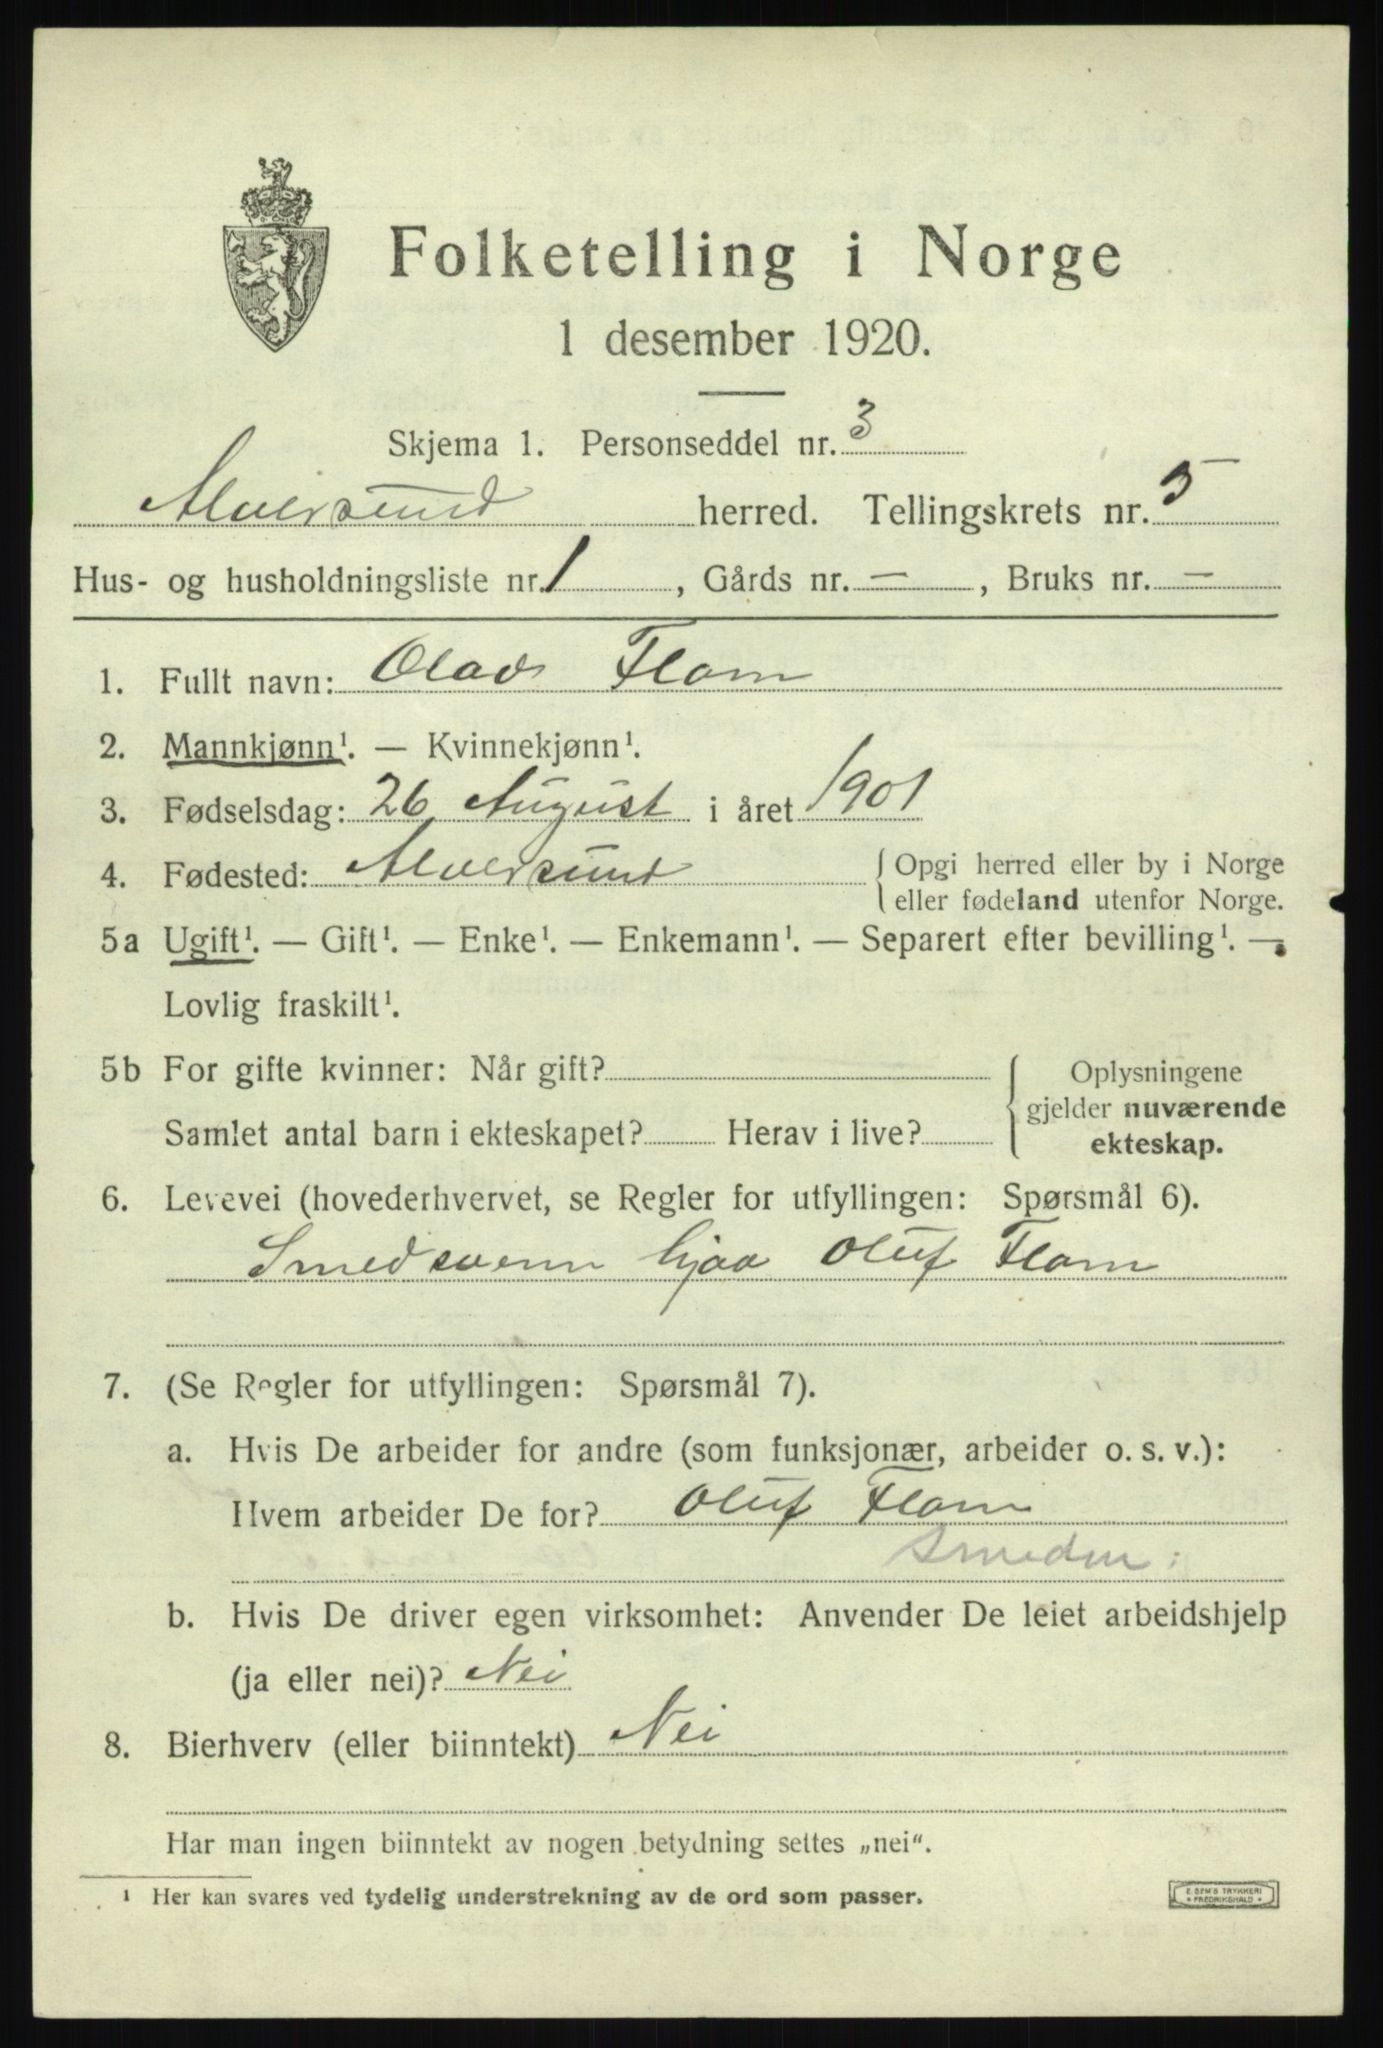 Folketelling i Norge
1 desember 1920.
Skjema 1. Personseddel nr. 3
Alversund herred. Tellingskrets nr. 5
Hus- og husholdningsliste nr. 1, Gårds nr. —, Bruks nr. —
1. Fullt navn: Olav Flom
2. Mannkjønn¹. — Kvinnekjønn¹.
3. Fødselsdag: 26 August i året 1901
4. Fødested: Alversund { Opgi herred eller by i Norge
eller fødeland utenfor Norge.
5a Ugift¹. — Gift¹. — Enke¹. — Enkemann¹. — Separert efter bevilling¹. —
Lovlig fraskilt¹.
5b For gifte kvinner: Når gift? { Oplysningene
gjelder nuværende
Samlet antal barn i ekteskapet? Herav i live? ekteskap.
6. Levevei (hovederhvervet, se Regler for utfyllingen: Spørsmål 6).
Smedsvenn hjaa Oluf Flom
7. (Se Regler for utfyllingen: Spørsmål 7).
a. Hvis De arbeider for andre (som funksjonær, arbeider o. s. v.):
Hvem arbeider De for? Oluf Flom
Smeden
b. Hvis De driver egen virksomhet: Anvender De leiet arbeidshjelp
(ja eller nei)? Nei
8. Bierhverv (eller biinntekt) Nei
Har man ingen biinntekt av nogen betydning settes „nei“.
¹ Her kan svares ved tydelig understrekning av de ord som passer.
E. SEM'S TRYKKERI
* FREDRIKSHALD *